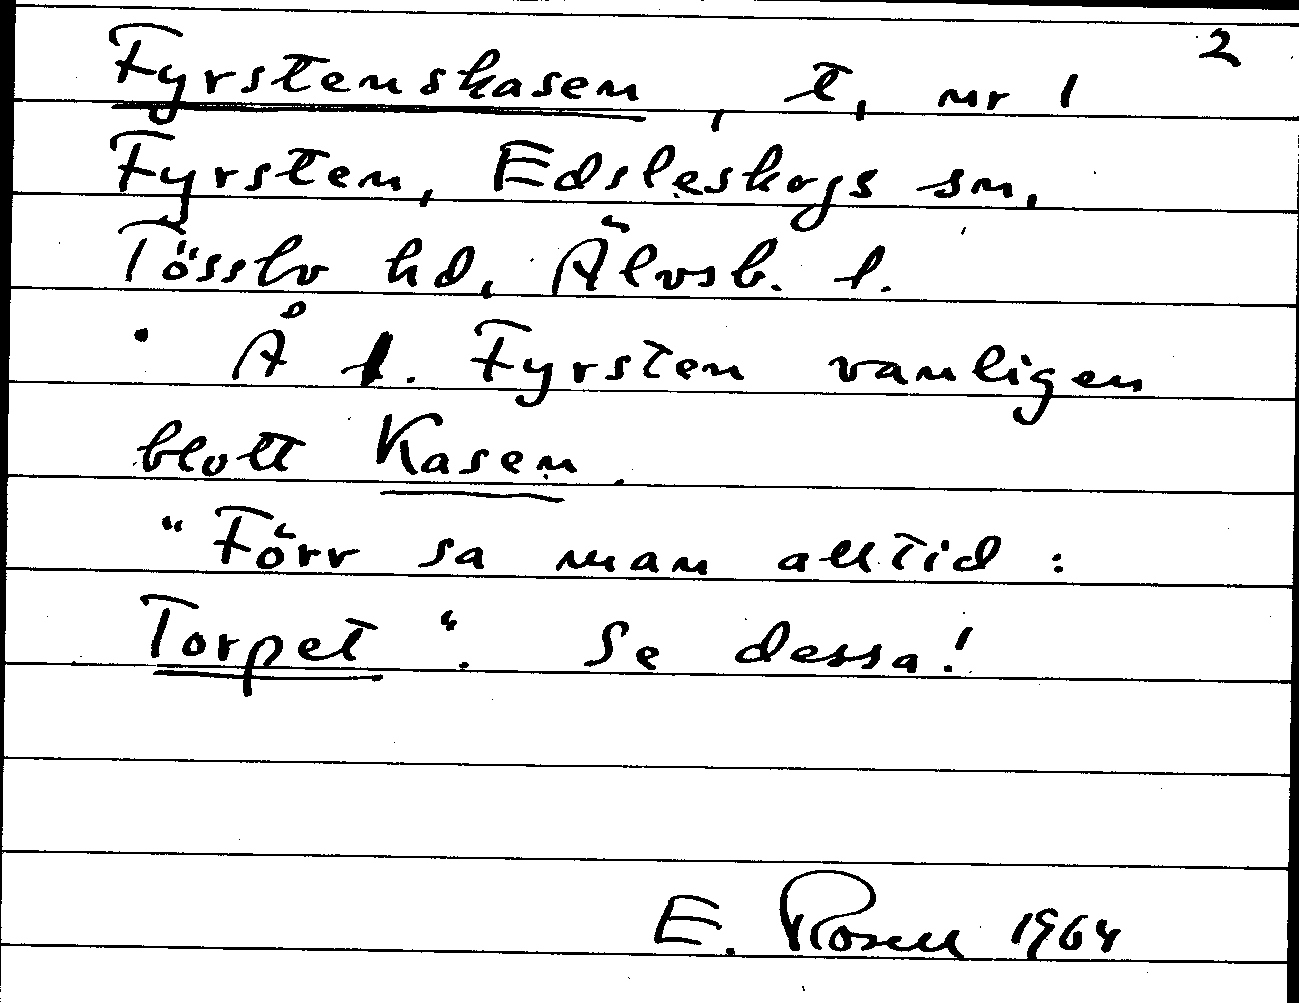 2
Fyrstenskasen, t, nr 1
Fyrsten, Edsleskogs sn,
Tösslv hd, Älvsb. l.
Å l. Fyrsten vanligen
blott Kasen.
"Förr sa man alltid:
Torpet". Se dessa!
E. Rosell 1964